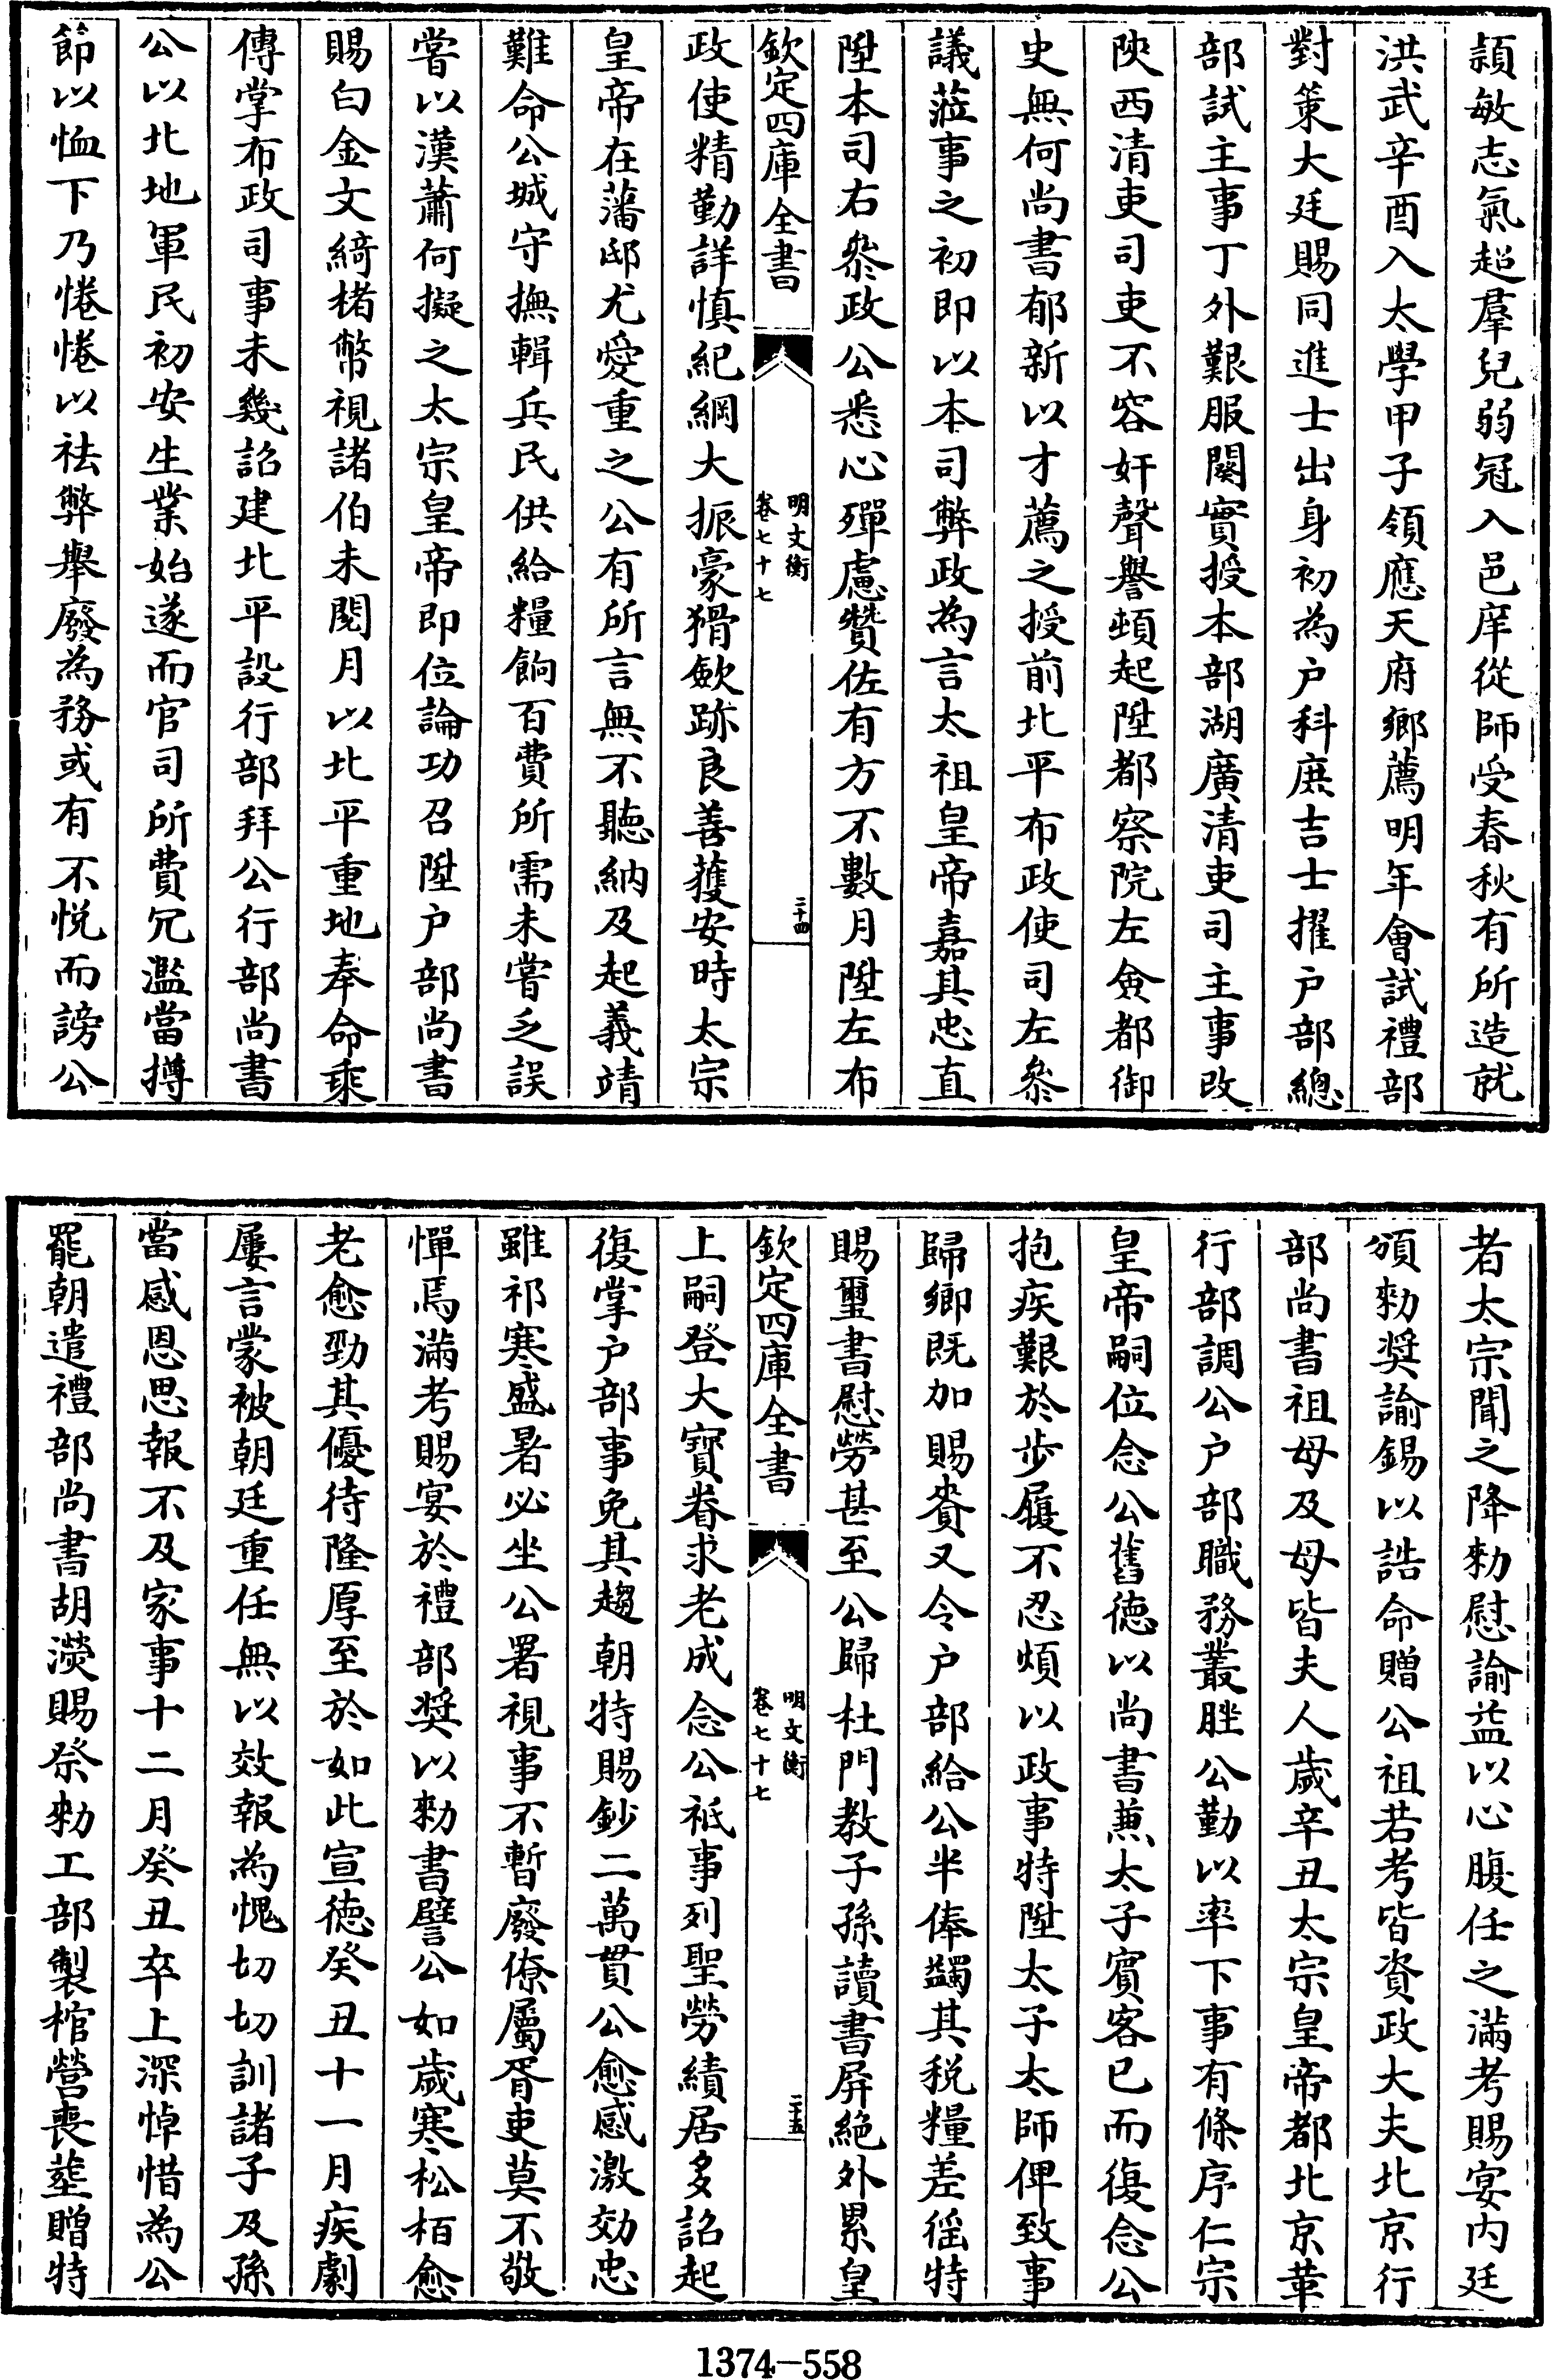 頴敏志氣超羣兒弱冠入邑庠從師受春秋有所造就
洪武辛酉入太學甲子領應天府鄉薦明年會試禮部
對策大廷賜同進士出身初為户科庶吉士擢户部總
部試主事丁外艱服闋實授本部湖廣清吏司主事改
陜西清吏司吏不容奸聲譽頓起陞都察院左僉都御
史無何尚書郁新以才薦之授前北平布政使司左叅
議蒞事之初即以本司弊政為言太祖皇帝嘉其忠直
陞本司右叅政公悉心殫慮贊佐有方不數月陞左布
欽定四庫全書
明文衡
卷七十七
二十四
政使精勤詳慎紀綱大振豪猾歛跡良善獲安時太宗
皇帝在藩邸尤愛重之公有所言無不聽納及起義靖
難命公城守撫輯兵民供給糧餉百費所需未嘗乏誤
嘗以漢蕭何擬之太宗皇帝即位論功召陞户部尚書
賜白金文綺楮幣視諸伯未閱月以北平重地奉命乘
傳掌布政司事未幾詔建北平設行部拜公行部尚書
公以北地軍民初安生業始遂而官司所費冗濫當撙
節以恤下乃惓惓以祛弊舉廢為務或有不悅而謗公
者太宗聞之降勑慰諭益以心腹任之滿考賜宴内廷
頒勑奬諭錫以誥命贈公祖若考皆資政大夫北京行
部尚書祖母及母皆夫人歲辛丑太宗皇帝都北京革
行部調公户部職務叢脞公勤以率下事有條序仁宗
皇帝嗣位念公舊德以尚書兼太子賓客已而復念公
抱疾艱於步履不忍煩以政事特陞太子太師俾致事
歸鄉既加賜賚又令户部給公半俸蠲其税糧差徭特
賜璽書慰勞甚至公歸杜門教子孫讀書屏絶外累皇
欽定四庫全書
明文衡
卷七十七
二十五
上嗣登大寳眷求老成念公祗事列聖勞績居多詔起
復掌户部事免其趨朝特賜鈔二萬貫公愈感激効忠
雖祁寒盛暑必坐公署視事不暫廢僚屬胥吏莫不敬
憚焉滿考賜宴於禮部奬以勑書譬公如歲寒松栢愈
老愈勁其優待隆厚至於如此宣德癸丑十一月疾劇
屢言蒙被朝廷重任無以效報為愧切切訓諸子及孫
當感恩思報不及家事十二月癸丑卒上深悼惜為公
罷朝遣禮部尚書胡濙賜祭勑工部製棺營喪塟贈特
1374-558